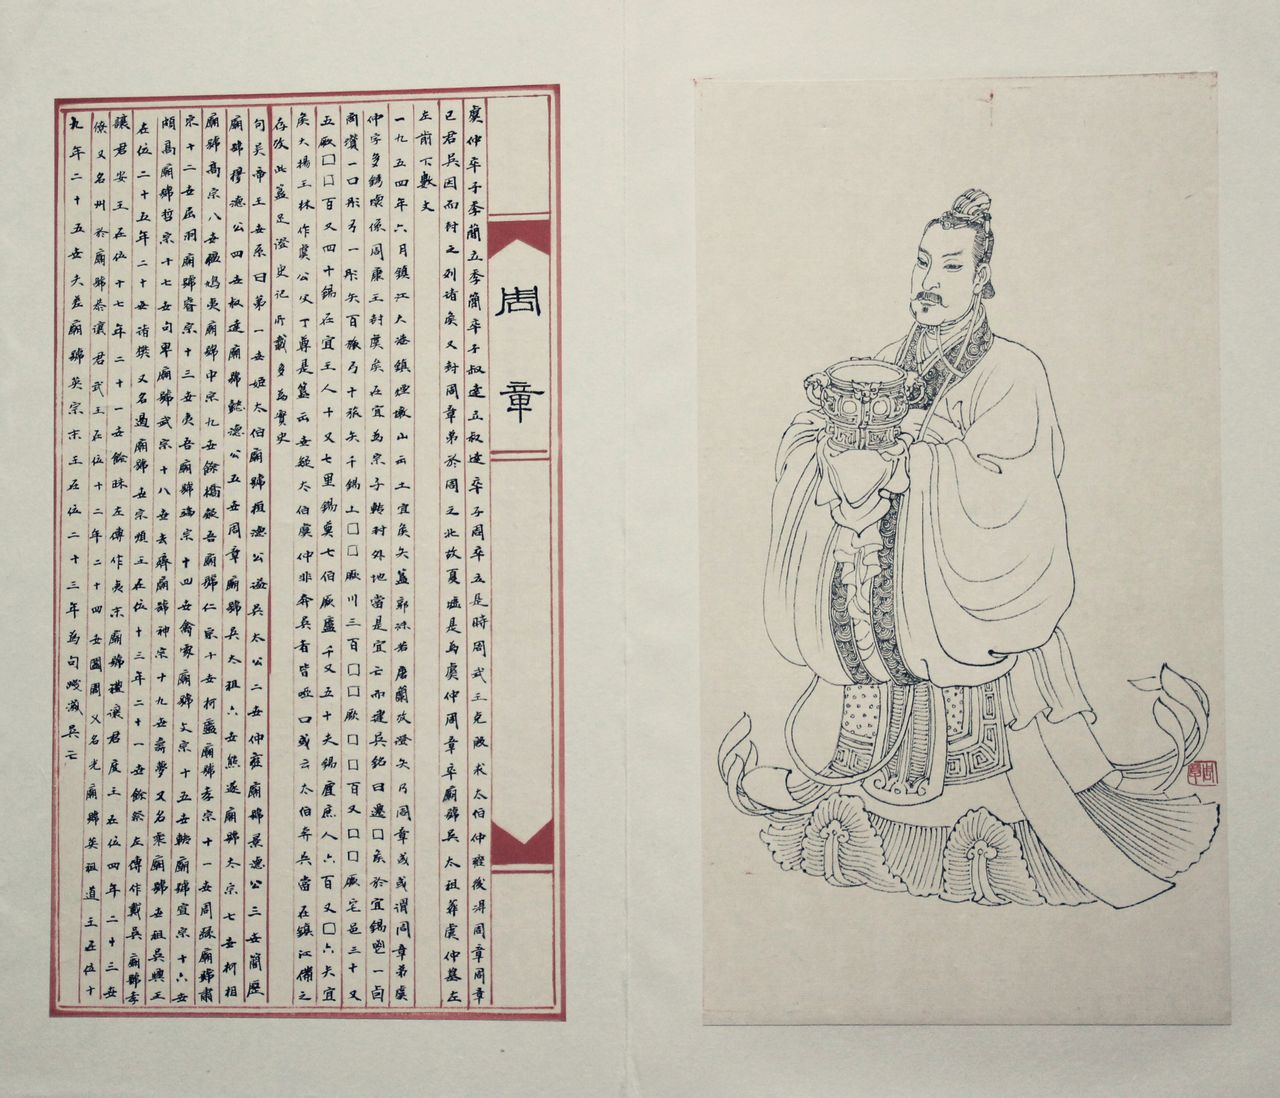 周章
虞仲卒子季簡立季簡卒子叔達立叔達卒子周卒立是時周武王克殷求太伯仲雍後得周章周章
已君吳因而封之列諸矦又封周章弟於周之北故夏墟是為虞仲周章卒廟號吳太祖葬虞仲墓左
左前下數丈
一九五四年六月鎮江大港鎮煙墩山出土宜矦夨簋郭沫若唐蘭攷證夨乃周章或謂周章弟虞
仲字多銹壞係周康王封虞矦在宜為宗子轉封外地當是宜亡而建吳銘曰遷口矦於宜錫鬯一卣
商瓚一口彤弓一彤矢百旅弓十旅矢千錫土口口厥川三百口口厥口口百又口口厥宅邑三十又
五厥口口百又四十錫在宜王人十又七里錫奠七伯厥盧千又五十夫錫宜庶人六百又口六夫宜
矦大揚王休作虞公父丁尊是簋出世疑太伯虞仲非奔吳者皆啞口或云太伯奔吳當在鎮江備之
存攷此簋足證史記所載多為實史
句吳帝王世系曰第一世姬太伯廟號祖德公諡吳太公二世仲雍廟號景德公三世簡歷
廟號穆德公四世叔達廟號懿德公五世周章廟號吳太祖六世熊遂廟號太宗七世柯相
廟號高宗八世彊鳩夷廟號中宗九世餘橋疑吾廟號仁宗十世柯盧廟號孝宗十一世周繇廟號肅
宗十二世屈羽廟號睿宗十三世夷吾廟號瑞宗十四世禽處廟號文宗十五世轉廟號宣宗十六世
頗高廟號哲宗十七世句卑廟號武宗十八世去齊廟號神宗十九世壽夢又名乘廟號世祖吳興王
在位二十五年二十世諸樊又名遏廟號世宗順王在位十三年二十一世餘祭左傳作戴吳廟號孝
讓君安王在位十七年二十一世餘昧左傳作夷末廟號禮讓君度王在位四年二十三世
僚又名州於廟號恭讓君武王在位十二年二十四世闔閭又名光廟號英祖道王在位十
九年二十五世夫差廟號英宗末王在位二十三年為句踐滅吳亡
周章